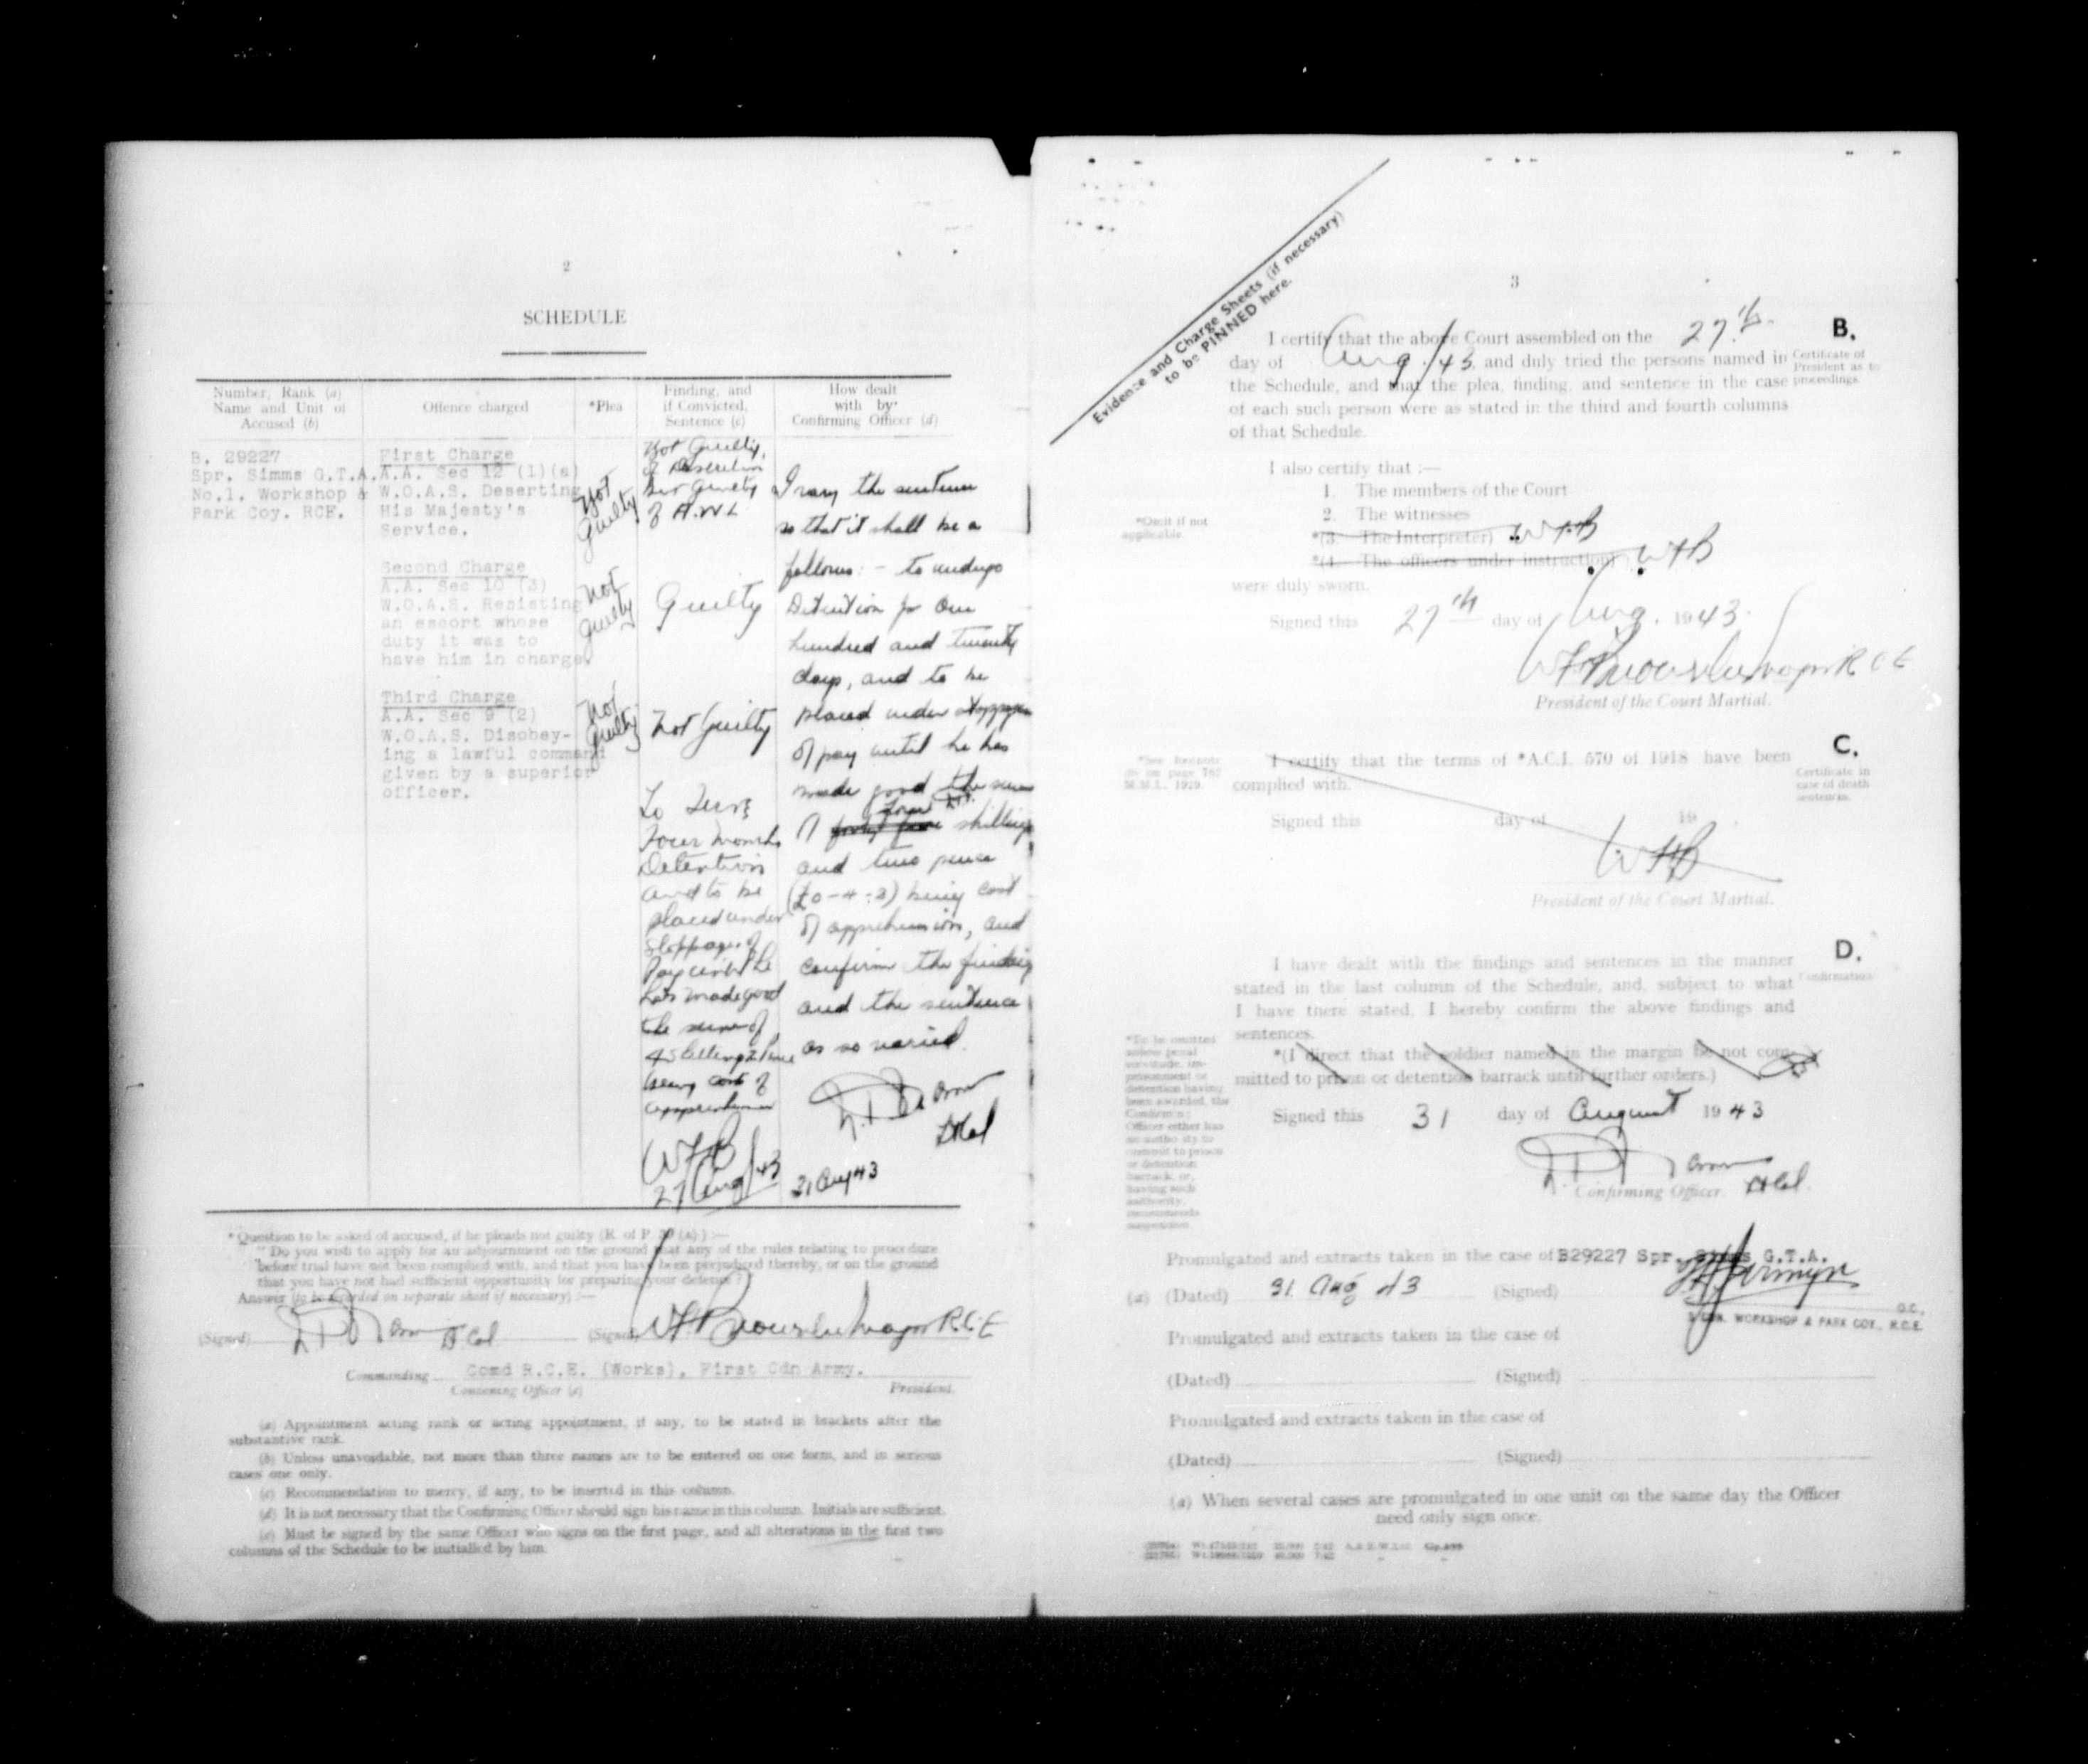 2
SCHEDULE
Number, Rank (a)
Name and Unit of
Accused (b)
Offence charged
*Plea
Finding, and
if Convicted,
Sentence (c)
How dealt
with by
Confirming Officer (d)
B. 29227
Spr. Simms G.T.A.
No.1. Workshop &
Park Coy. RCE.
First Charge
A.A. Sec 12 (1)(a)
W.O.A.S. Deserting
His Majesty's
Service.
Second Charge
A.A. Sec 10 (3)
W.O.A.S. Resisting
an escort whose
duty it was to
have him in charge.
Third Charge
A.A. Sec 9 (2)
W.O.A.S. Disobey-
ing a lawful command
given by a superior
officer.
Not
Guilty
Not
guilty
Not
Guilty
Not Guilty,
of Desertion
but guilty
of A.W.L
Guilty
Not Guilty
To Serve
Four Months
Detention
and to be
placed under
stoppage of
Pay until he
has made good
the sum of
4 Shillings 2 Pence
being cost of
apprehension
WFB
27 Aug/43
I vary the sentence
so that it shall be a
follows: - to undergo
Detention for One
hundred and twenty
days, and to be
placed under stoppages
of pay until he has
made good the sum
four
of shillings
and two pence
(£0-4-2) being cost
of apprehension, and
confirm the finding
and the sentence
as so varied.
31 Aug 43
*Question to be asked of accused, if he pleads not guilty (R. of P. (a)) :—
"Do you wish to apply for an adjournment on the ground that any of the rules relating to procedure
before trial have not been complied with, and that you have been prejudiced thereby, or on the ground
that you have not had sufficient opportunity for preparing your defence?"
Answer (to be recorded on separate sheet if necessary) :—
(Signed) (Signed) R.C.E
Commanding Comd R.C.E. (Works), First Cdn Army.
Convening Officer (e) President.
(a) Appointment acting rank or acting appointment, if any, to be stated in brackets after the
substantive rank.
(b) Unless unavoidable, not more than three names are to be entered on one form, and in serious
cases one only.
(c) Recommendation to mercy, if any, to be inserted in this column.
(d) It is not necessary that the Confirming Officer should sign his name in this column. Initials are sufficient.
(e) Must be signed by the same Officer who signs on the first page, and all alterations in the first two
columns of the Schedule to be initialled by him.
Evidence and Charge Sheets (if necessary)
to be PINNED here.
3
B.
Certificate of
President as to
proceedings.
I certify that the above Court assembled on the 27th
day of Aug/43, and duly tried the persons named in
the Schedule, and that the plea, finding, and sentence in the case
of each such person were as stated in the third and fourth columns
of that Schedule.
I also certify that :—
1. The members of the Court
2. The witnesses
*Omit if not
applicable.
*(3. The Interpreter) WFB
*(4. The officers under instruction) WFB
were duly sworn.
Signed this 27th day of Aug. 1943.
R C E
President of the Court Martial.
C.
Certificate in
case of death
sentences.
*See footnote
on page 762
M.M.L. 1929.
I certify that the terms of *A.C.I. 570 of 1918 have been
complied with.
Signed this day of 19 .
WFB
President of the Court Martial.
D.
Confirmation
I have dealt with the findings and sentences in the manner
stated in the last column of the Schedule, and, subject to what
I have there stated, I hereby confirm the above findings and
sentences.
*To be omitted
unless penal
servitude, im-
prisonment or
detention having
been awarded, the
Confirming
Officer either has
no authority to
commit to prison
or detention
barrack, or,
having such
authority,
recommends
suspension.
*(I direct that the soldier named in the margin be not com-
mitted to prison or detention barrack until further orders.)
Signed this 31 day of August 1943
Confirming Officer.
Promulgated and extracts taken in the case of B29227 Spr. Simms G.T.A.
(a) (Dated) 31 Aug 43 (Signed)
O.C.,
WORKSHOP & PARK COY., R.C.E.
Promulgated and extracts taken in the case of
(Dated) (Signed)
Promulgated and extracts taken in the case of
(Dated) (Signed)
(a) When several cases are promulgated in one unit on the same day the Officer
need only sign once.